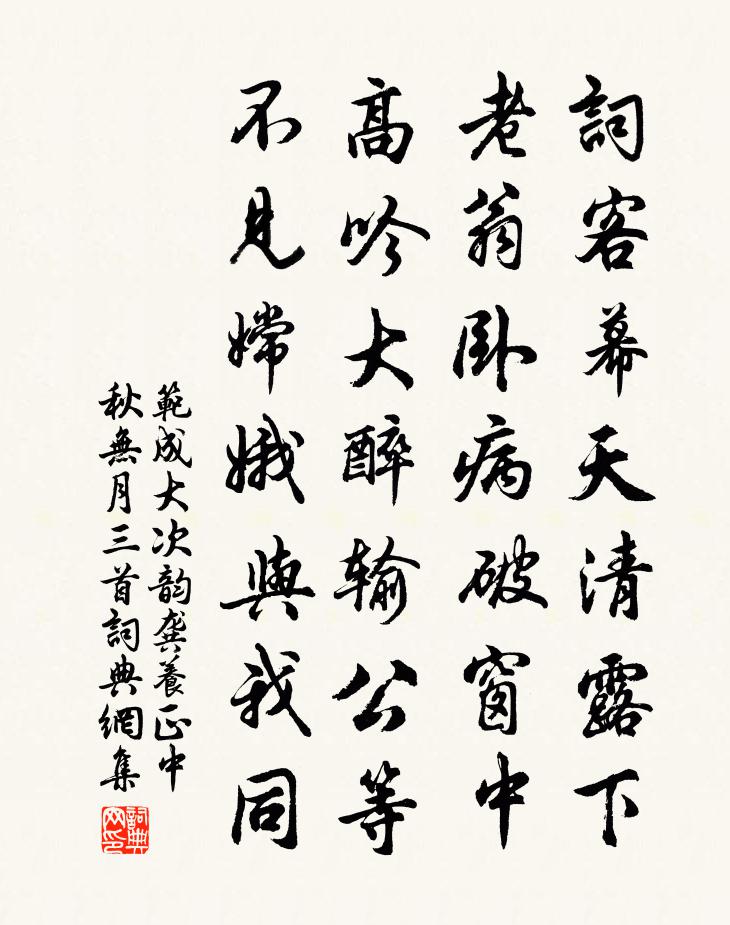 詞客幕天清露下
老翁卧病破窗中
高吟大醉輸公等
不見嫦娥與我同
範成大次韵龔養正中
秋無月三首詞典網集
詞典网印